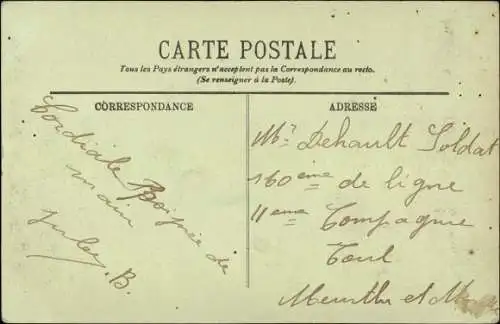 CARTE POSTALE
Tous les Pays étrangers n'acceptent pas la Correspondance au recto.
(Se renseigner à la Poste).
CORRESPONDANCE
Cordiale Poignée de
main
B.
ADRESSE
Mr Dehault Soldat
160ème de ligne
11ème Compagnie
Toul
Meurthe et